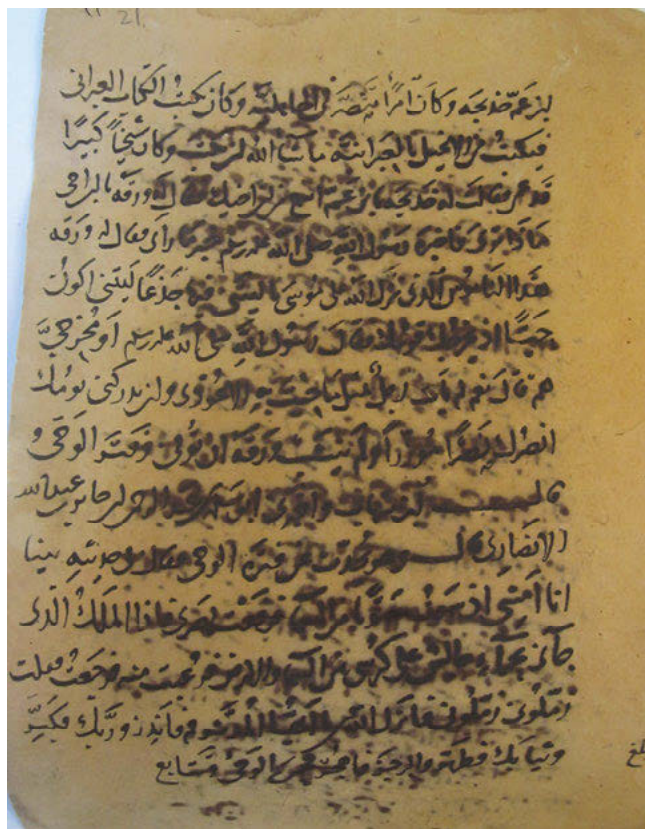 21
ابن عم خديجه وكان امرأ تنصر في الجاهلية وكان يكتب الكتاب العبراني
فيكتب من الانجيل بالعبرانية ما شا الله ان يكتب وكان شيخاً كبيرًا
قد عمي فقالت له خديجه يا بن عم اسمع من ابن اخيك فقال له ورقه يا ابن اخي
ماذا ترى فاخبره رسول الله صلى الله عليه وسلم خبر ما راى فقال له ورقه
هذا الناموس الذي نزل الله على موسى يا ليتني فيها جذعًا ليتني اكون
حيًا اذ يخرجك قومك فقال رسول الله صلى الله عليه وسلم أو مخرجيَّ
هم قال نعم لم يأت رجل بمثل ما جيت به الا عودي وان يدركني يومك
انصرك نصرًا مؤزرًا ثم لم ينشب ورقه أن توفي وفتر الوحي
قال ابن شهاب واخبرني ابو سلمه بن عبد الرحمن ان جابر بن عبد الله
الانصاري قال وهو يحدث عن فترة الوحي فقال في حديثه بينا
انا أمشي اذ سمعت صوتًا من السما فرفعت بصري فاذا الملك الذي
جاني بحراء جالس على كرسي بين السما والارض فرعبت منه فرجعت فقلت
زملوني زملوني فانزل الله يا أيها المدثر قم فانذر وربك فكبر
وثيابك فطهر والرجز فاهجر فحمي الوحي وتتابع
بلغ